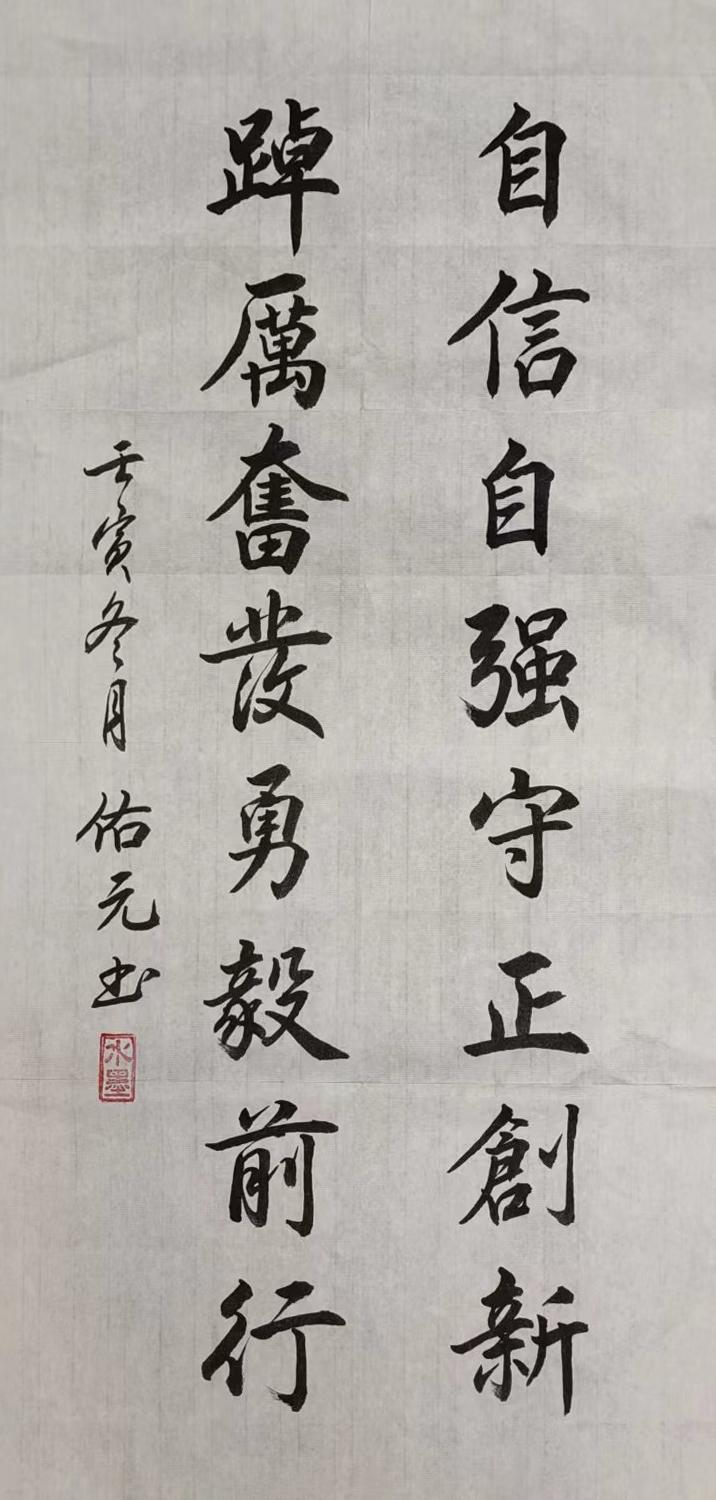 自信自强守正創新
踔厲奮發勇毅前行
壬寅冬月 佑元书
水墨